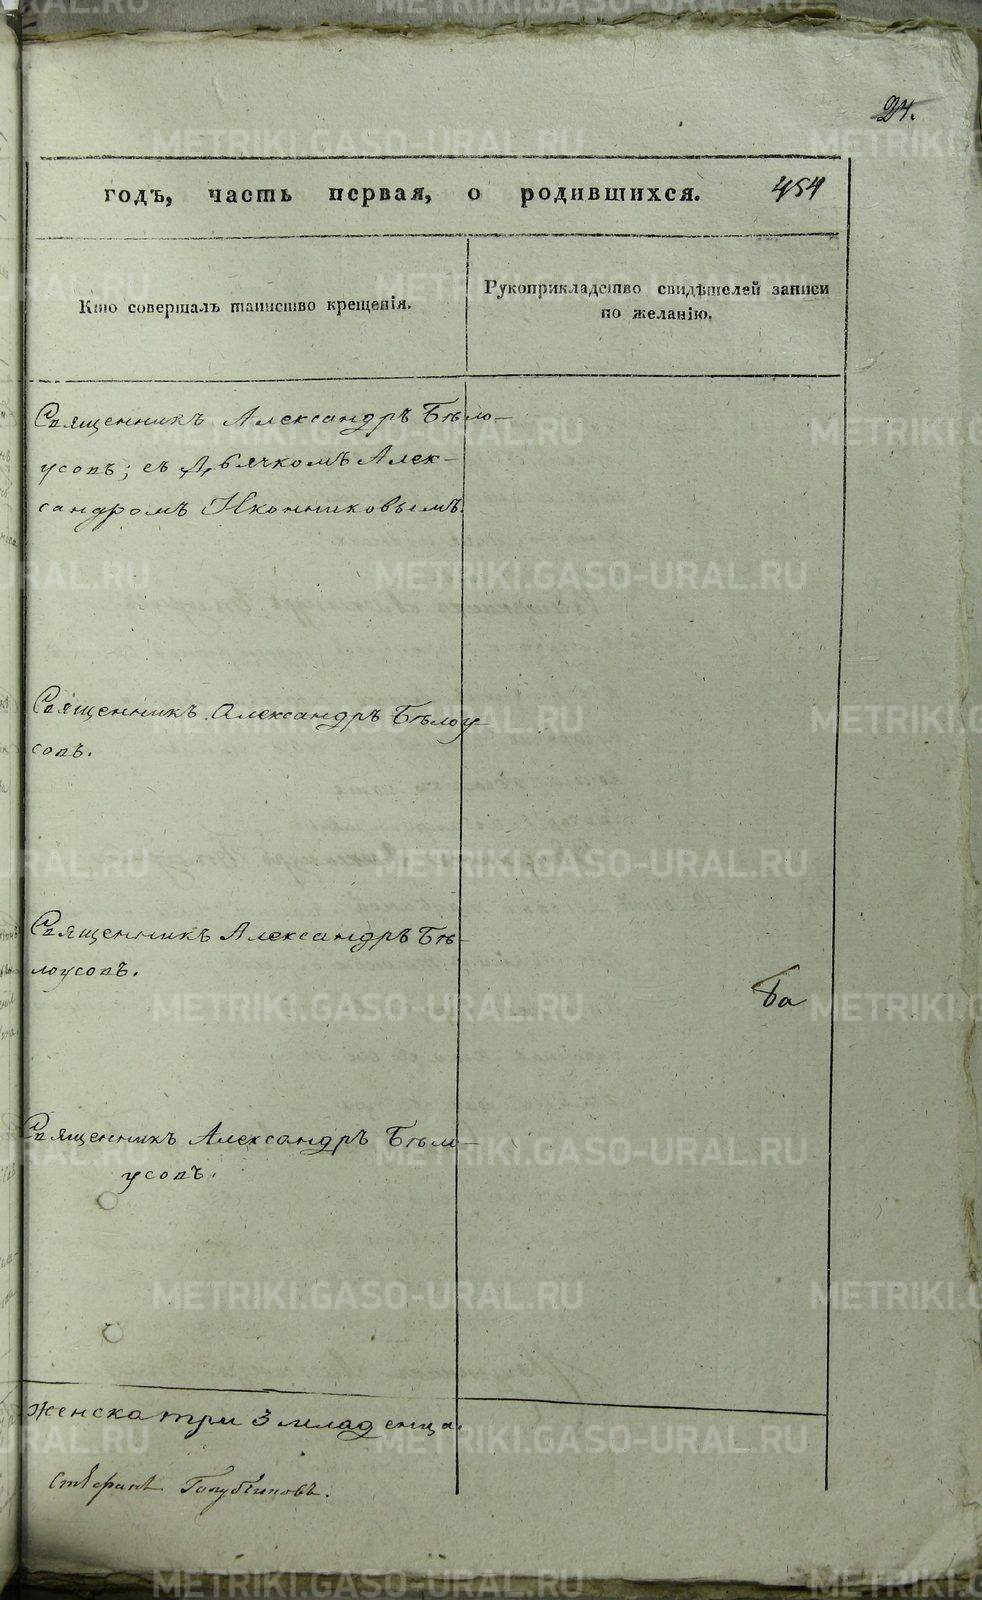 24.
годъ, часть первая, о родившихся. 454
Кто совершалъ таинство крещенія.
Рукоприкладство свидѣтелей записи по желанію.
Священникъ Александръ Бѣло-
усовъ; съ Дьячкомъ Алек-
сандромъ Иконниковымъ.
Священникъ Александръ Бѣлоу-
совъ.
Священникъ Александръ Бѣ-
лоусовъ.
Священникъ Александръ Бѣло-
усовъ.
Женска три 3 младенца.
Стефанъ Голубчиковъ.
METRIKI.GASO-URAL.RU